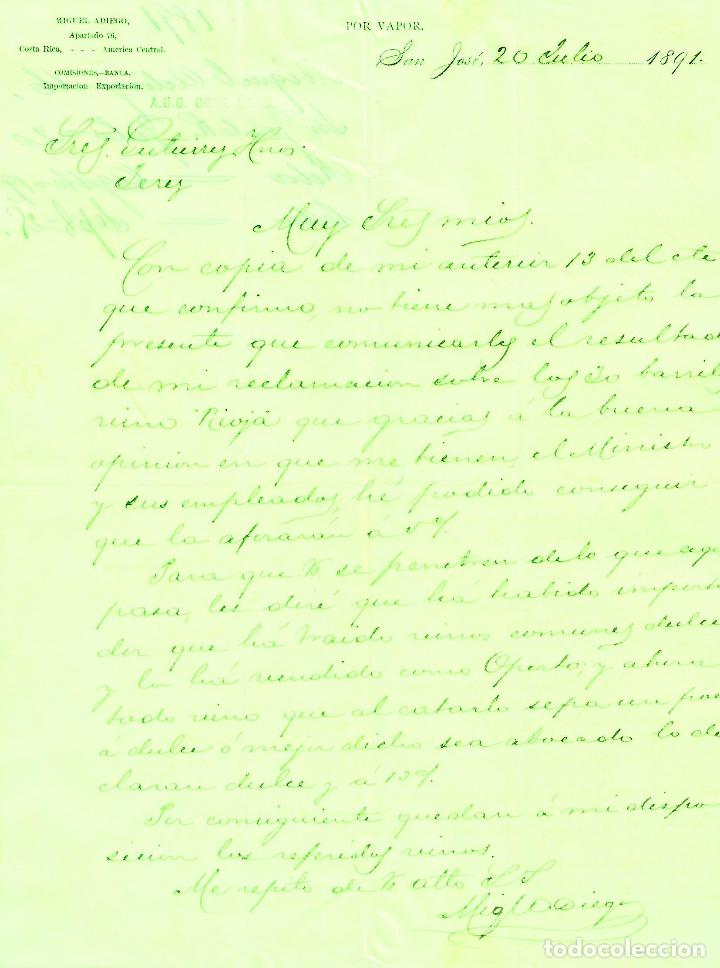 MIGUEL ADIEGO,
Apartado 76,
Costa Rica, - - - America Central.
COMISIONES,—BANCA.
Importacion Exportación.
POR VAPOR.
San José, 20 Julio 1891.
Sres. Gutierrez Hnos.
Jerez
Muy Sres mios.
Con copia de mi anterior 13 del cte
que confirmo, no tiene mas objeto la
presente que comunicarles el resultad
de mi reclamacion sobre los 20 barril
vino Rioja que gracias á la buena
opinion en que me tienen, el Ministro
y sus empleados, hé podido conseguir
que la aforarán á
Para que V se penetren de lo que aqu
pasa, les diré que há habido importa
dor que há traido vinos comunes dulce
y lo há vendido como Oporto; y ahora
todo vino que al catarlo sepa un poc
á dulce ó mejor dicho sea abocado lo de
claran dulce y á
Por consiguiente quedan á mi dispo
sicion los referidos vinos.
Me repito de V atto S S
Migl Adiego
todocoleccion